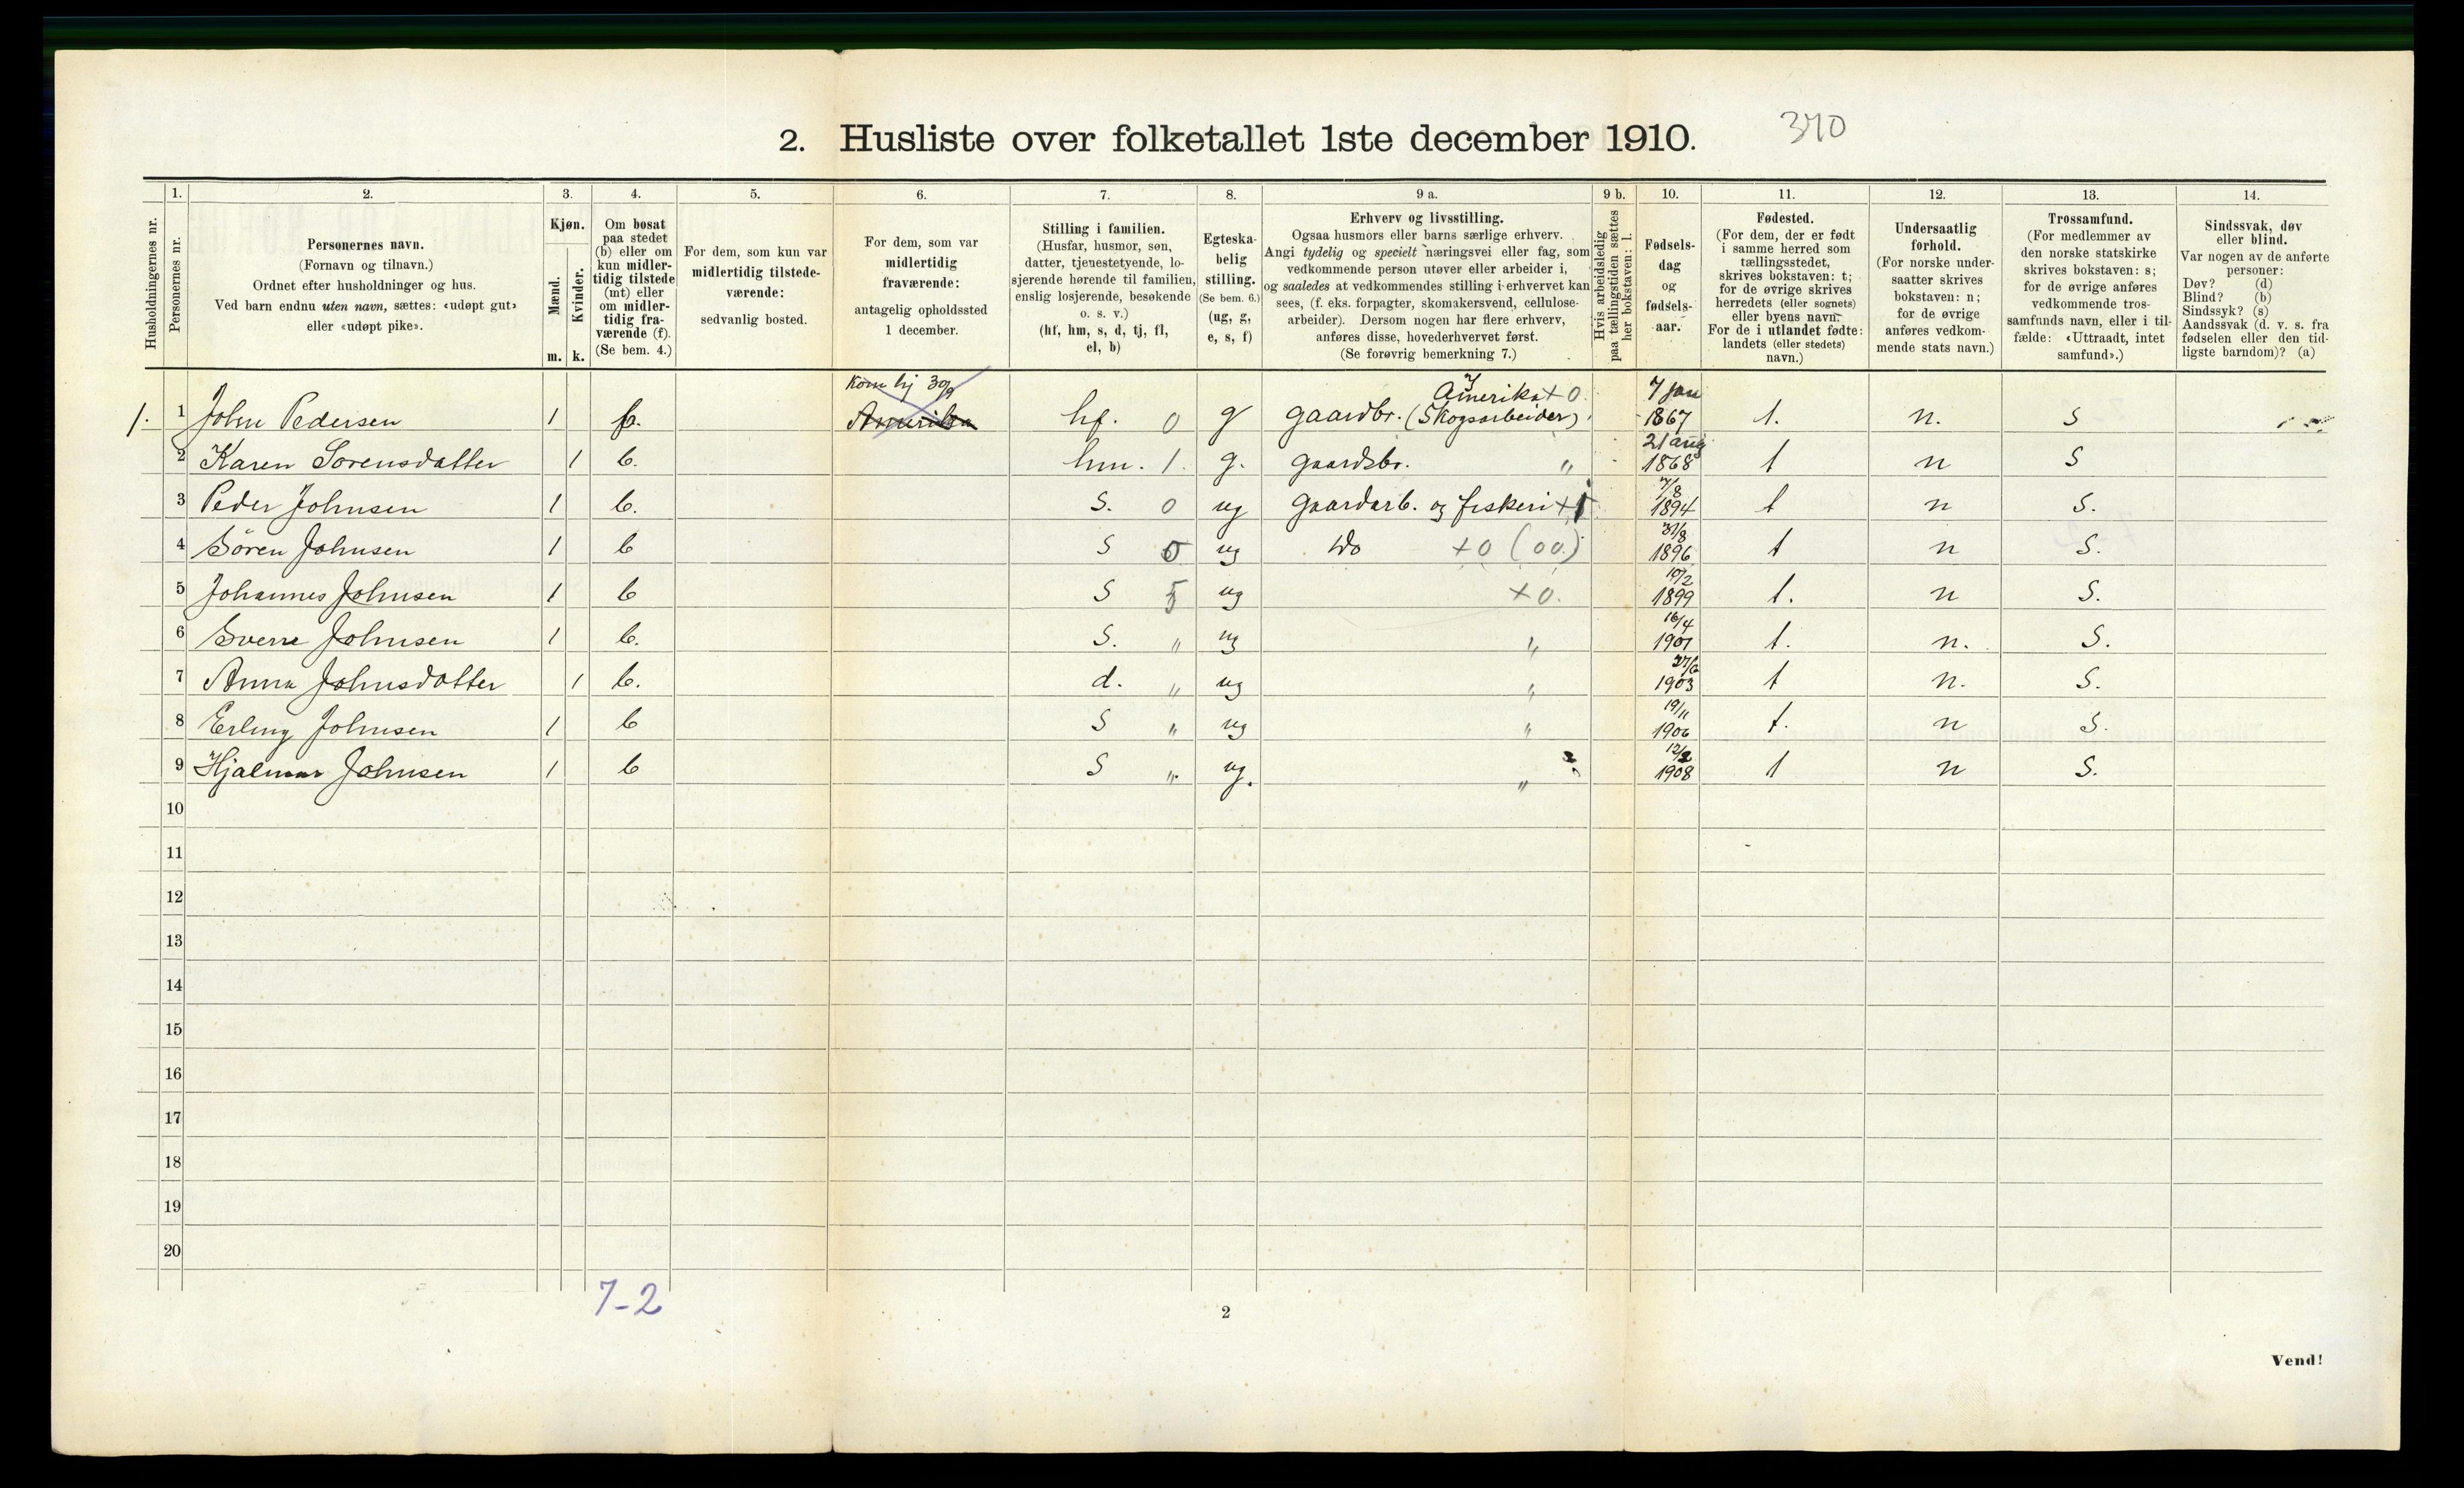 2. Husliste over folketallet 1ste december 1910. 370
1. 2. 3. 4. 5. 6. 7. 8. 9 a. 9 b. 10. 11. 12. 13. 14.
Husholdningernes nr.
Personernes nr.
Personernes navn.
(Fornavn og tilnavn.)
Ordnet efter husholdninger og hus.
Ved barn endnu uten navn, sættes: «udøpt gut»
eller «udøpt pike».
Kjøn.
Mænd.
Kvinder.
m. k.
Om bosat
paa stedet
(b) eller om
kun midler-
tidig tilstede
(mt) eller
om midler-
tidig fra-
værende (f).
(Se bem. 4.)
For dem, som kun var
midlertidig tilstede-
værende:
sedvanlig bosted.
For dem, som var
midlertidig
fraværende:
antagelig opholdssted
1 december.
Stilling i familien.
(Husfar, husmor, søn,
datter, tjenestetyende, lo-
sjerende hørende til familien,
enslig losjerende, besøkende
o. s. v.)
(hf, hm, s, d, tj, fl,
el, b)
Egteska-
belig
stilling.
(Se bem. 6.)
(ug, g,
e, s, f)
Erhverv og livsstilling.
Ogsaa husmors eller barns særlige erhverv.
Angi tydelig og specielt næringsvei eller fag, som
vedkommende person utøver eller arbeider i,
og saaledes at vedkommendes stilling i erhvervet kan
sees, (f. eks. forpagter, skomakersvend, cellulose-
arbeider). Dersom nogen har flere erhverv,
anføres disse, hovederhvervet først.
(Se forøvrig bemerkning 7.)
Hvis arbeidsledig
paa tællingstiden sættes
her bokstaven: l.
Fødsels-
dag
og
fødsels-
aar.
Fødested.
(For dem, der er født
i samme herred som
tællingsstedet,
skrives bokstaven: t;
for de øvrige skrives
herredets (eller sognets)
eller byens navn.
For de i utlandet fødte:
landets (eller stedets)
navn.)
Undersaatlig
forhold.
(For norske under-
saatter skrives
bokstaven: n;
for de øvrige
anføres vedkom-
mende stats navn.)
Trossamfund.
(For medlemmer av
den norske statskirke
skrives bokstaven: s;
for de øvrige anføres
vedkommende tros-
samfunds navn, eller i til-
fælde: «Uttraadt, intet
samfund».)
Sindssvak, døv
eller blind.
Var nogen av de anførte
personer:
Døv? (d)
Blind? (b)
Sindssyk? (s)
Aandssvak (d. v. s. fra
fødselen eller den tid-
ligste barndom)? (a)
Kom hj 30/9 Amerika +0. 7 jan
1. 1 John Pedersen 1 Amerika hf. 0 g gaardbr. (Skogsarbeider) 1867 t. n. S
21 aug
2 Karen Sørensdatter 1 b. hm. 1. g. gaardsbr. " 1868 t n S
7/8
3 Peder Johnsen 1 b. S. 0 ug gaardarb. og fiskeri +1 1894 t n S.
31/8
4 Sören Johnsen 1 b S 0 ug do +0 (00.) 1896 t n S.
10/2
5 Johannes Johnsen 1 b S 5 ug +0. 1899 t. n S.
16/4
6 Sverre Johnsen 1 b. S. " ug " 1901 t. n. S.
27/6
7 Anna Johnsdatter 1 b. d. " ug " 1903 t n. S.
19/11
8 Erling Johnsen 1 b S " ug " 1906 t. n S.
9 Hjalmar Johnsen 1 b S " ug. " 1908 t n S.
10
11
12
13
14
15
16
17
18
19
20
7-2
2
Vend!